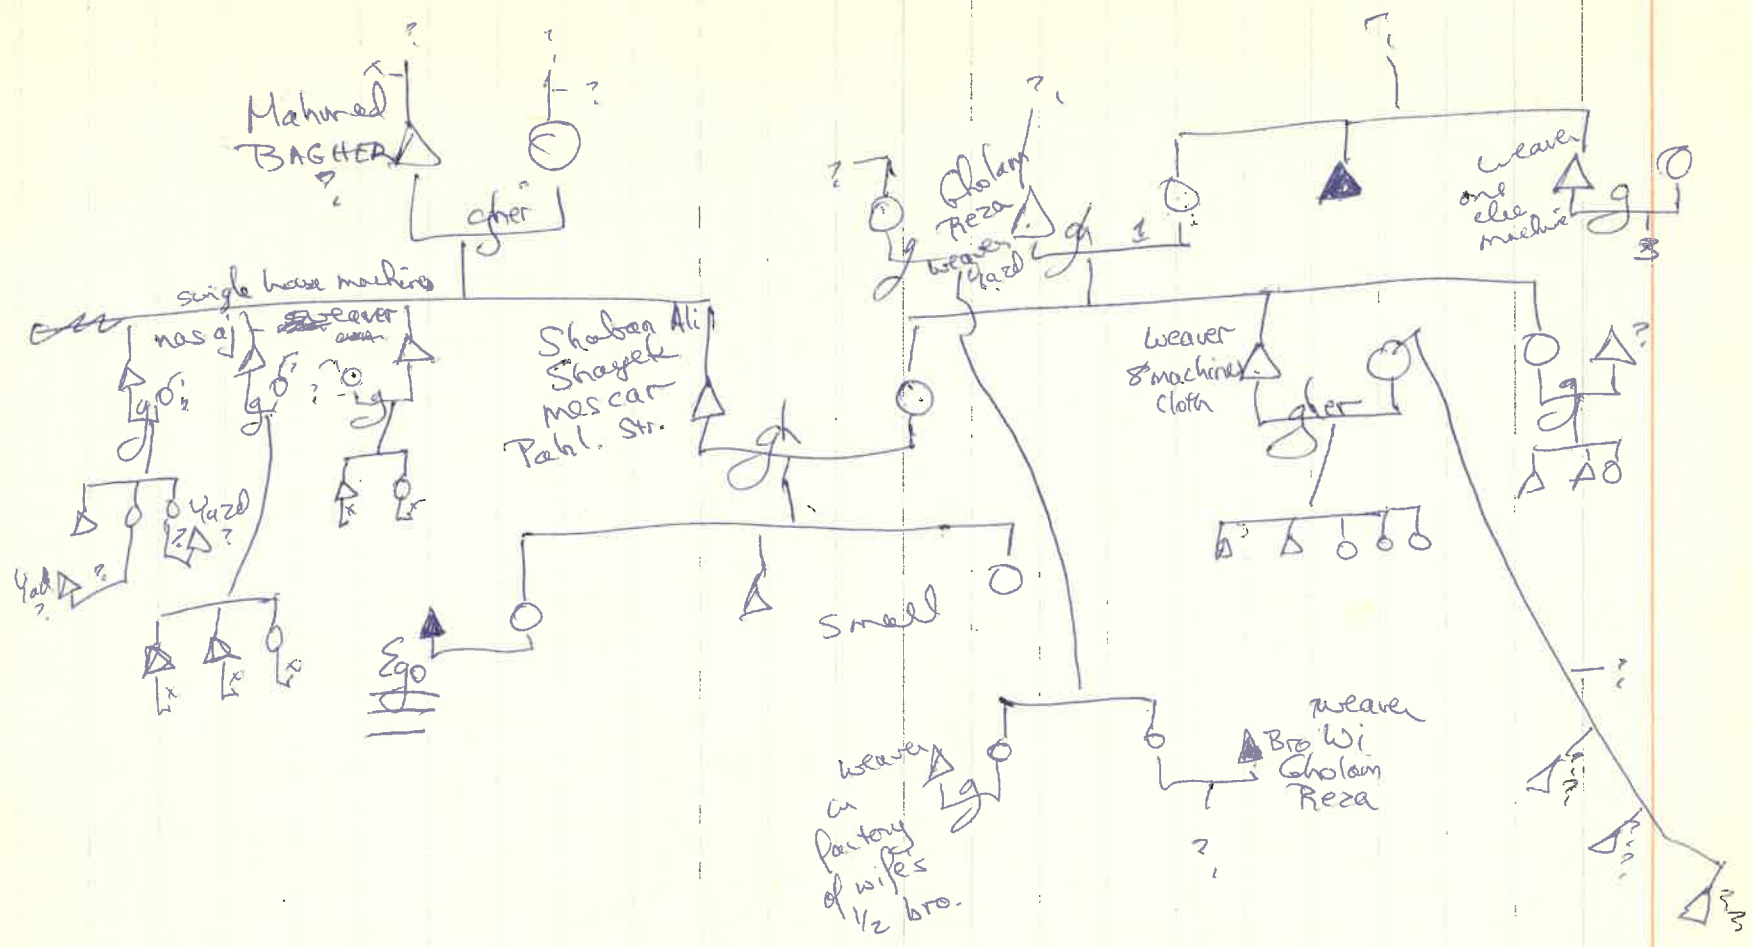 ?
?
?
Mahumad
BAGHER
?
gher
single house machines
nasaj
weaver
?
g
g
g
Yazd
?
?
?
?
x
x
x
x
x
Shaban Ali
Shayek
mescar
Pahl. Str.
gh
Small
Ego
?
?
Gholam
Reza
weaver
Yazd
g
gh
1
?
weaver
one
elec
machine
g
3
weaver
8 machines
cloth
gher
?
g
?
?
?
?
weaver
in
factory
of wife's
1/2 bro.
g
weaver
Bro Wi
Gholam
Reza
?